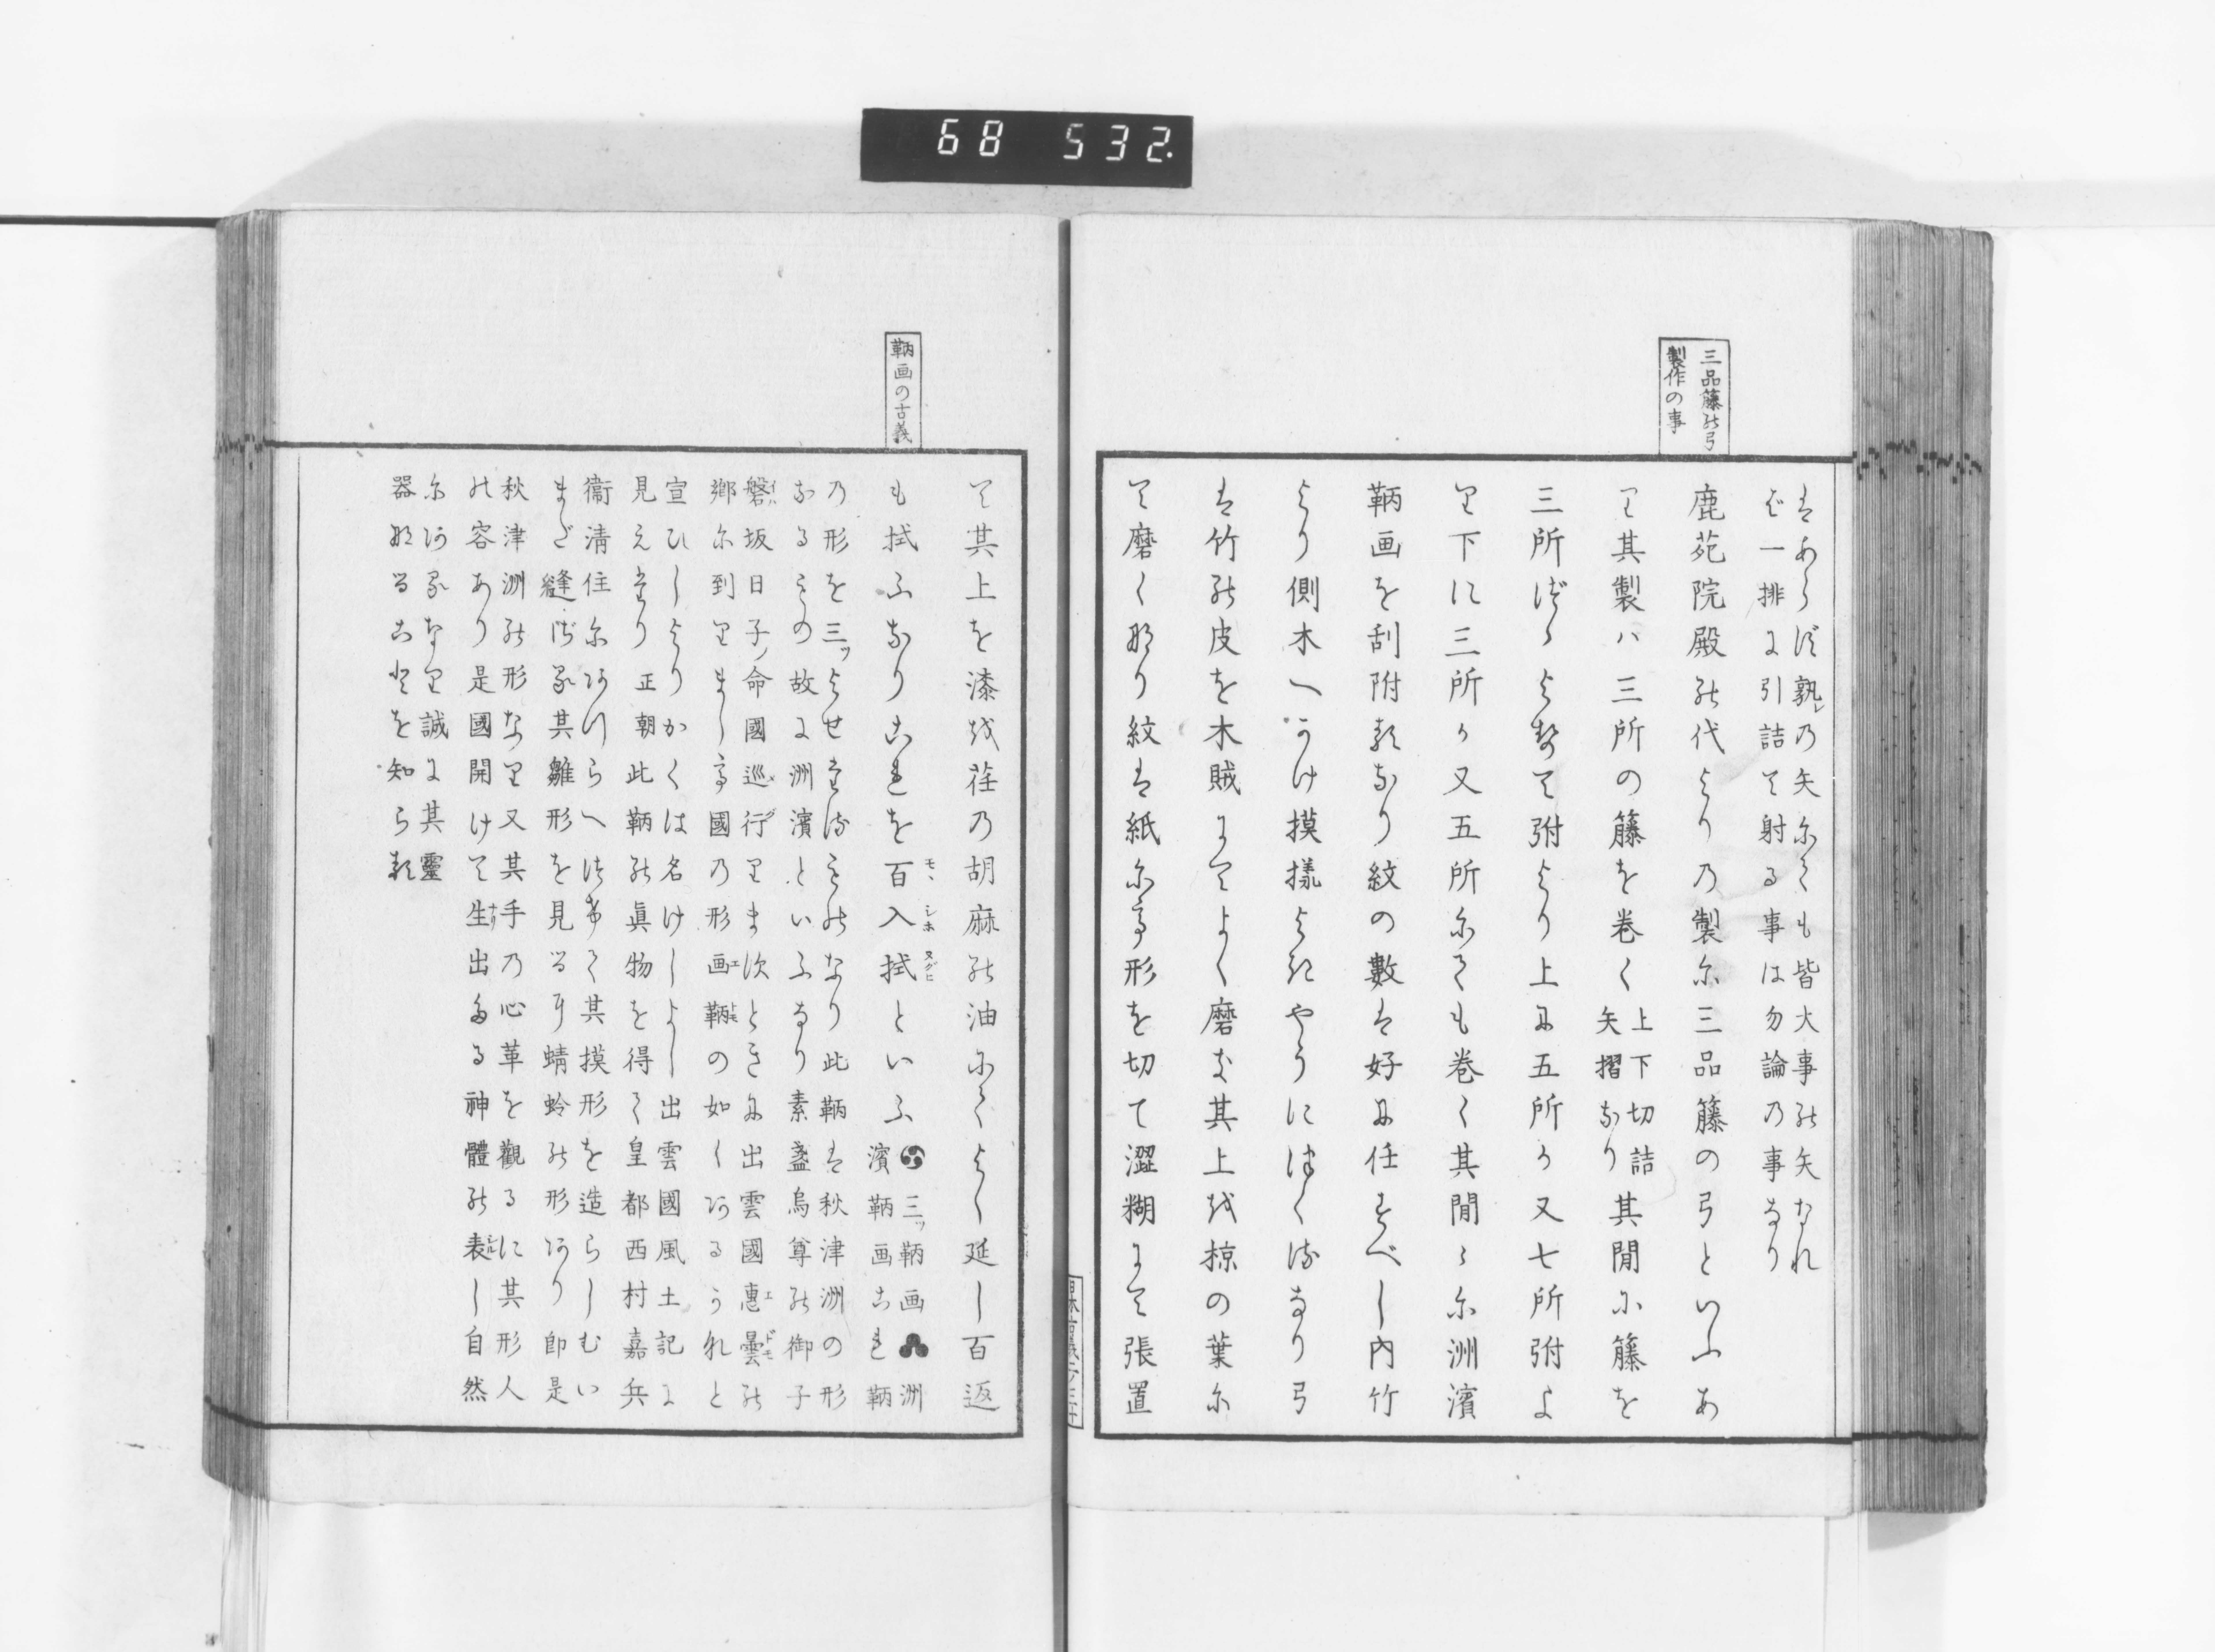 68 532.
三品籐の弓
製作の事
はあらず孰レ乃矢にても皆大事の矢なれ
ば一排に引詰て射る事は勿論乃事なり
鹿苑院殿の代より乃製に三品籐の弓といふあ
り其製ハ三所の籐を巻く上下切詰矢摺なり其間に籐を
三所づゝよせて弣より上に五所か又七所弣よ
り下に三所か又五所にても巻く其間々に洲濱
鞆画を刮附るなり紋の數は好に任すべし内竹
より側木へかけ摸様よきやうにほくるなり弓
は竹の皮を木賊にてよく磨き其上を椋の葉に
て磨くなり紋は紙にて形を切て澀糊にて張置
鞆画の古義
て其上を漆を荏乃胡麻の油にてよく延し百返
も拭ふなりこれを百入拭といふ三ッ鞆画洲濱鞆画これ鞆
モヽシホヌグヒ
乃形を三ッよせたるものなり此鞆は秋津洲の形
なるものゆゑ故に洲濱といふなり素盞烏尊の御子
磐坂日子ノ命國巡行りま次ときに出雲國惠曇の
鄉に到りまして國乃形画鞆の如くあるかれと
宣ひしよりかくは名けしよし出雲國風土記に
見えたり正朝此鞆の眞物を得て皇都西村嘉兵
衞淸住にあつらへ付けて其摸形を造らしむい
まだ縫はざる其雛形を見るに蜻蛉の形あり卽是
秋津洲の形なり又其手乃心革を觀るに其形人
の容あり是國開けて生出たる神體の表し自然
にあるなり誠に其靈
器なることを知らる